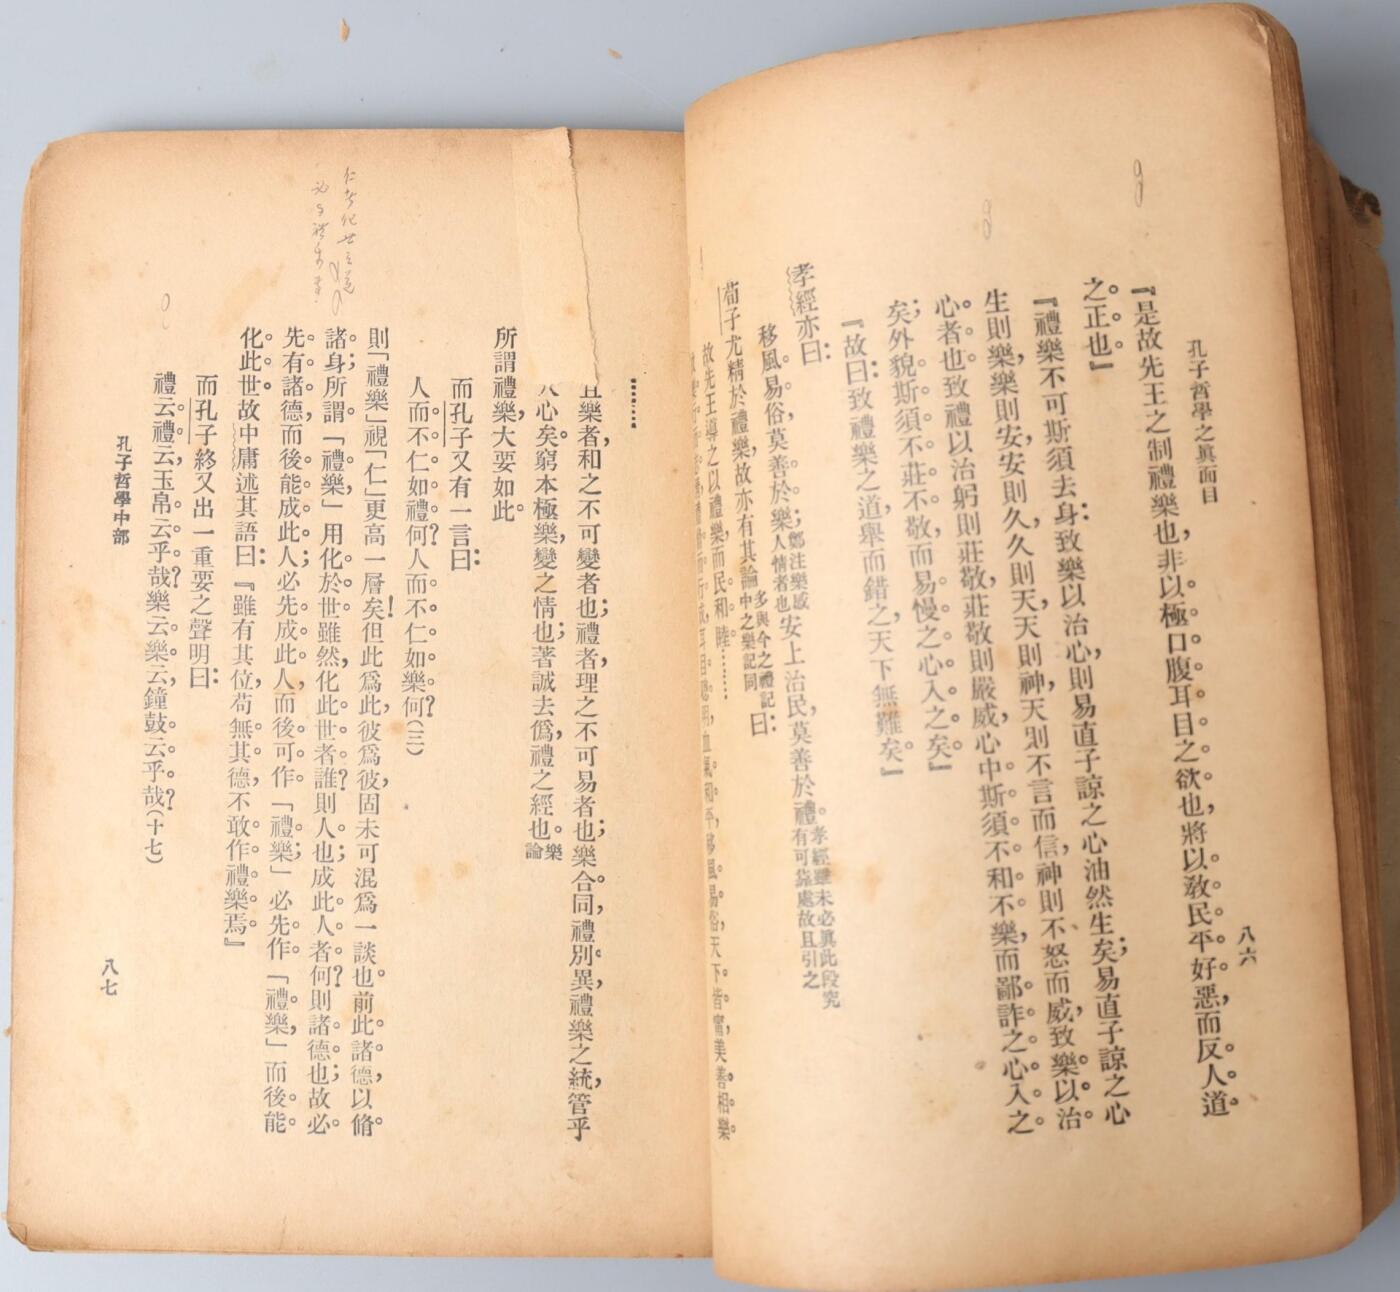 孔子哲學之眞面目
八六
『是故先王之制禮樂也，非以極口腹耳目之欲也，將以敎民平好惡，而反人道
之正也。』
『禮樂不可斯須去身：致樂以治心，則易直子諒之心油然生矣；易直子諒之心
生則樂，樂則安，安則久，久則天，天則神，天則不言而信，神則不怒而威，致樂以治
心者也。致禮以治躬則莊敬，莊敬則嚴威，心中斯須不和不樂，而鄙詐之心入之
矣；外貌斯須不莊不敬，而易慢之心入之矣。』
『故曰：致禮樂之道，舉而錯之天下，無難矣。』
孝經亦曰：
移風易俗，莫善於樂；鄭注樂感人情者也安上治民，莫善於禮。孝經雖未必眞此段究有可靠處故且引之
荀子尤精於禮樂，故亦有其論多與今之禮記中之樂記同曰：
故先王導之以禮樂而民和睦。……
且樂者，和之不可變者也；禮者，理之不可易者也；樂合同，禮別異，禮樂之統，管乎
人心矣。窮本極變，樂之情也；著誠去僞，禮之經也。樂論
所謂禮樂，大要如此。
而孔子又有一言曰：
人而不仁如禮何？人而不仁如樂何？（三）
則「禮樂」視「仁」更高一層矣！但此爲此，彼爲彼，固未可混爲一談也。前此諸德，以脩
諸身；所謂「禮樂，」用化於世。雖然，化此世者誰？則人也；成此人者何？則諸德也；故必
先有諸德，而後能成此人；必先成此人，而後可作「禮樂；」必先作「禮樂」而後能
化此世。故中庸述其語曰：『雖有其位，苟無其德，不敢作禮樂焉。』
而孔子終又出一重要之聲明曰：
禮云禮云，玉帛云乎哉？樂云樂云，鐘鼓云乎哉？（十七）
孔子哲學中部
八七